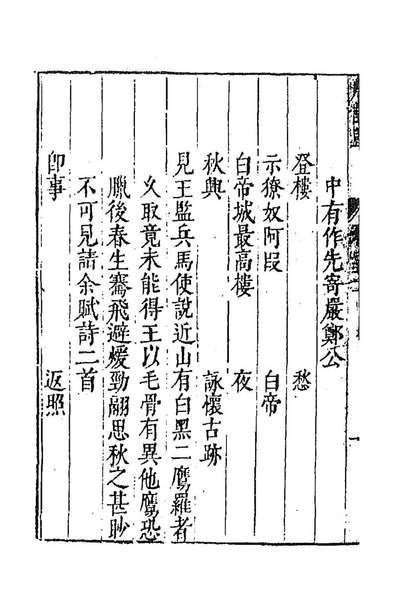 中有作先寄嚴鄭公
登樓 愁
示獠奴阿叚 白帝
白帝城最高樓 夜
秋興 詠懷古跡
見王監兵馬使說近山有白黑二鷹羅者
久取竟未能得王以毛骨有異他鷹恐
臘後春生鶱飛避煖勁翮思秋之甚眇
不可見請余賦詩二首
即事 返照